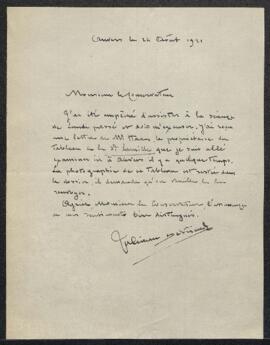 Anvers le 24 Août 1921
Monsieur le Conservateur
J'ai été empêché d'assister à la séance
de Lundi passé et dois m'excuser, j'ai reçu
une lettre de Mr le propriétaire du
Tableau de la Ste Famille que je suis allé
examiner ici à Anvers il y a quelque temps.
La photographie de ce Tableau est restée dans
le dossier, il demande qu'on veuille la lui
renvoyer.
Agréez Monsieur le Conservateur l'assurance
de mes sentiments bien distingués.
Juliaan De Vriendt